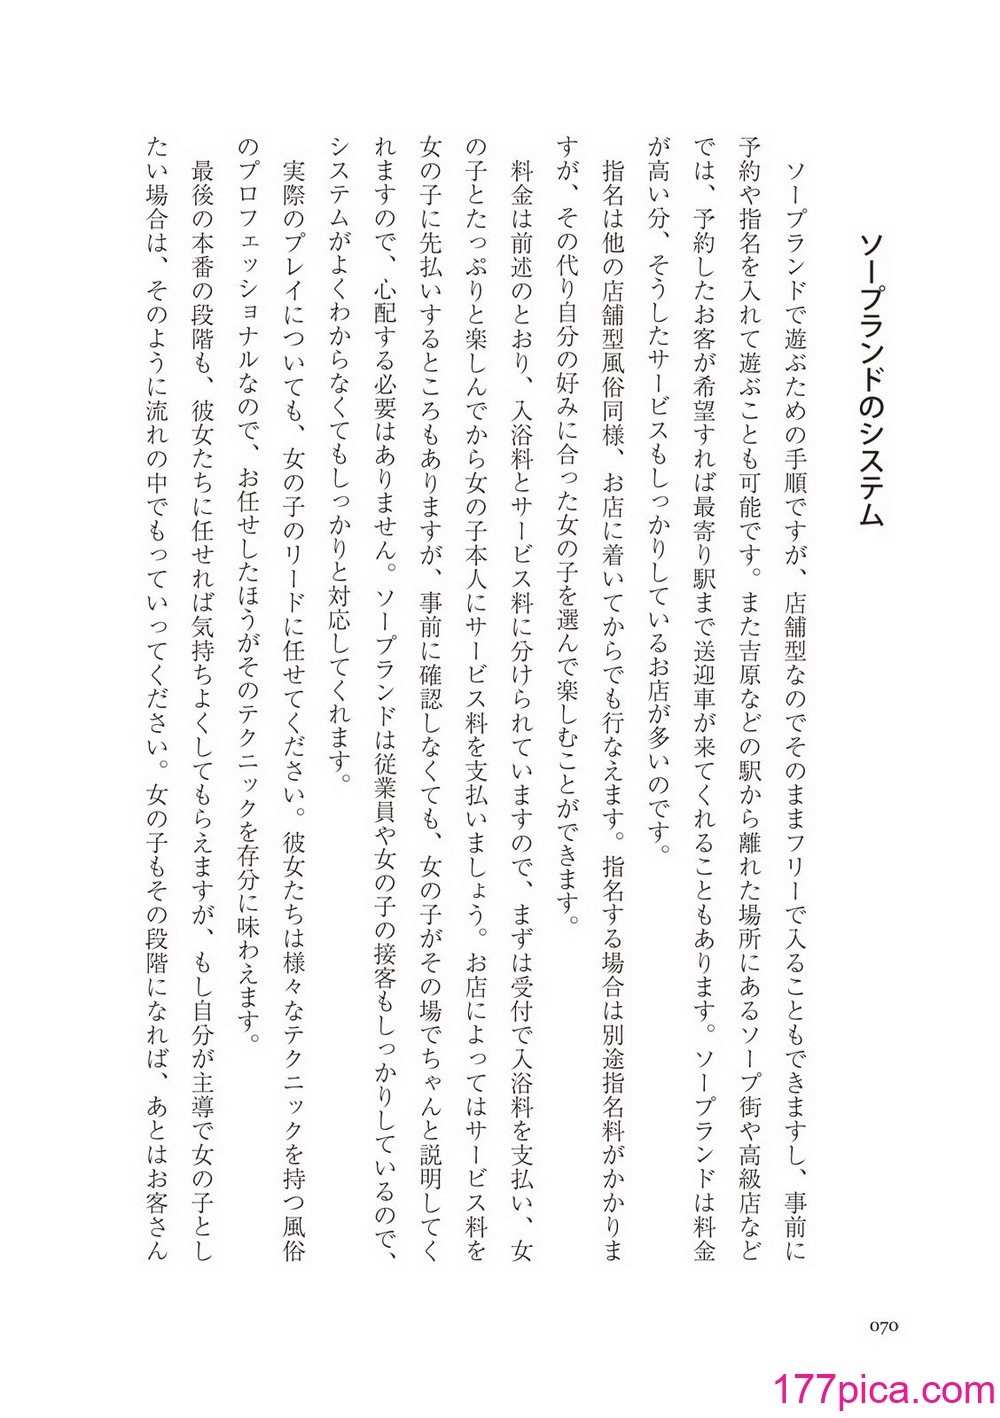 ソープランドのシステム
ソープランドで遊ぶための手順ですが、店舗型なのでそのままフリーで入ることもできますし、事前に
予約や指名を入れて遊ぶことも可能です。また吉原などの駅から離れた場所にあるソープ街や高級店など
では、予約したお客が希望すれば最寄り駅まで送迎車が来てくれることもあります。ソープランドは料金
が高い分、そうしたサービスもしっかりしているお店が多いのです。
指名は他の店舗型風俗同様、お店に着いてからでも行なえます。指名する場合は別途指名料がかかりま
すが、その代り自分の好みに合った女の子を選んで楽しむことができます。
料金は前述のとおり、入浴料とサービス料に分けられていますので、まずは受付で入浴料を支払い、女
の子とたっぷりと楽しんでから女の子本人にサービス料を支払いましょう。お店によってはサービス料を
女の子に先払いするところもありますが、事前に確認しなくても、女の子がその場でちゃんと説明してく
れますので、心配する必要はありません。ソープランドは従業員や女の子の接客もしっかりしているので、
システムがよくわからなくてもしっかりと対応してくれます。
実際のプレイについても、女の子のリードに任せてください。彼女たちは様々なテクニックを持つ風俗
のプロフェッショナルなので、お任せしたほうがそのテクニックを存分に味わえます。
最後の本番の段階も、彼女たちに任せれば気持ちよくしてもらえますが、もし自分が主導で女の子とし
たい場合は、そのように流れの中でもっていってください。女の子もその段階になれば、あとはお客さん
070
177pica.com